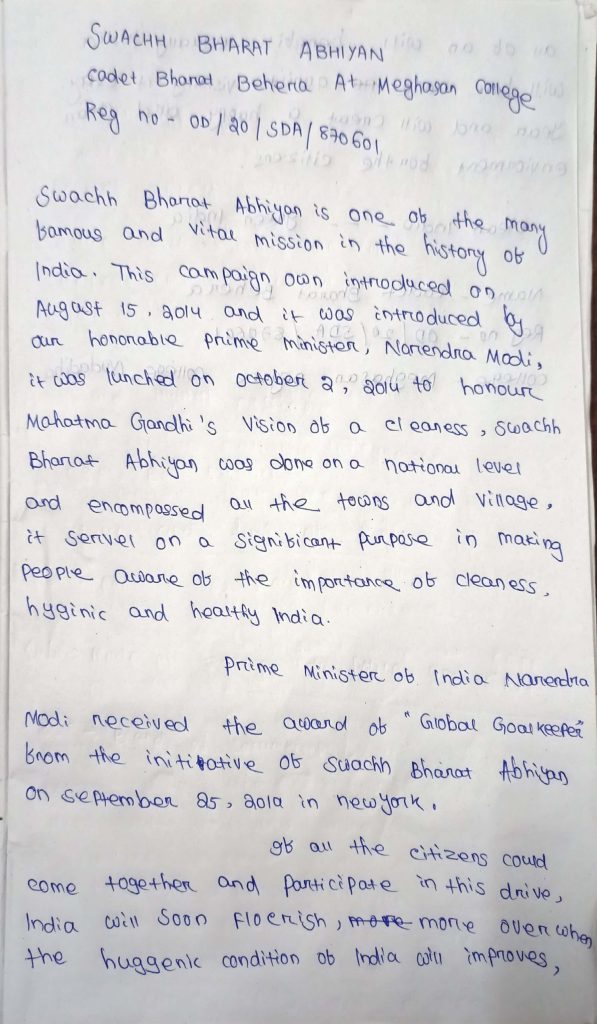 SWACHH BHARAT ABHIYAN
Cadet Bharat Behera At Meghasan College
Reg no - OD/20/SDA/870601
Swachh Bharat Abhiyan is one of the many
famous and vital mission in the history of
India. This campaign own introduced on
August 15, 2014 and it was introduced by
our honorable prime minister, Narendra Modi,
it was lunched on october 2, 2014 to honour
Mahatma Gandhi's vision of a cleaness, swachh
Bharat Abhiyan was done on a national level
and encompassed all the towns and village,
it server on a significant purpose in making
people aware of the importance of cleaness,
hyginic and healthy India.
Prime Minister of India Narendra
Modi received the award of "Global Goalkeeper"
from the inititative of Swachh Bharat Abhiyan
on september 25, 2019 in newyork.
If all the citizens could
come together and participate in this drive,
India will soon floerish, more more over when
the huggenic condition of India will improves,